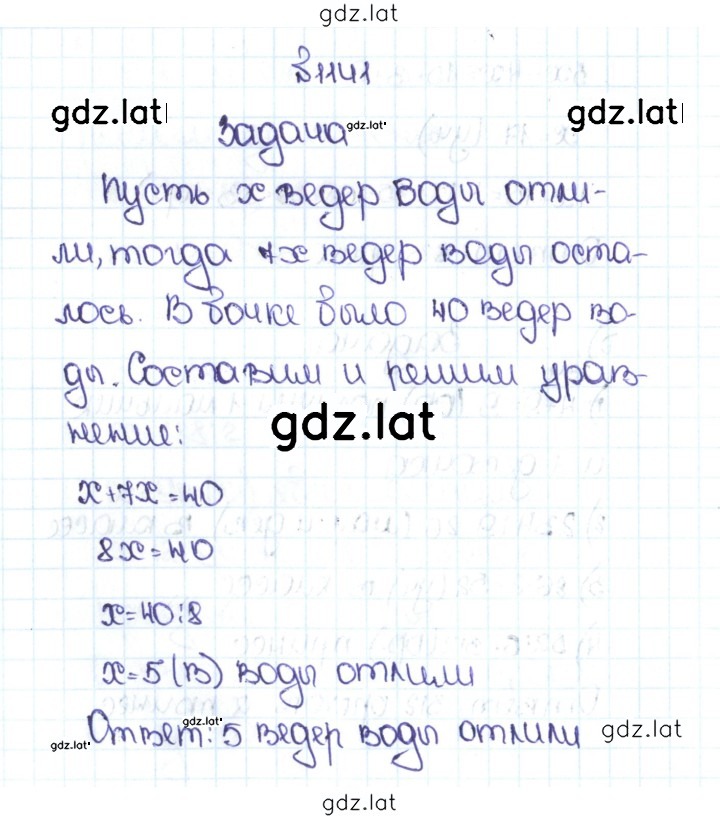 gdz.lat
№1141
gdz.lat gdz.lat
Задача gdz.lat
Пусть x ведер воды отли-
ли, тогда 7x ведер воды оста-
лось. В бочке было 40 ведер во-
ды. Составим и решим урав-
нение:
gdz.lat
x+7x=40
8x=40
x=40:8
x=5 (в) воды отлили
gdz.lat
Ответ: 5 ведер воды отлили
gdz.lat gdz.lat
gdz.lat